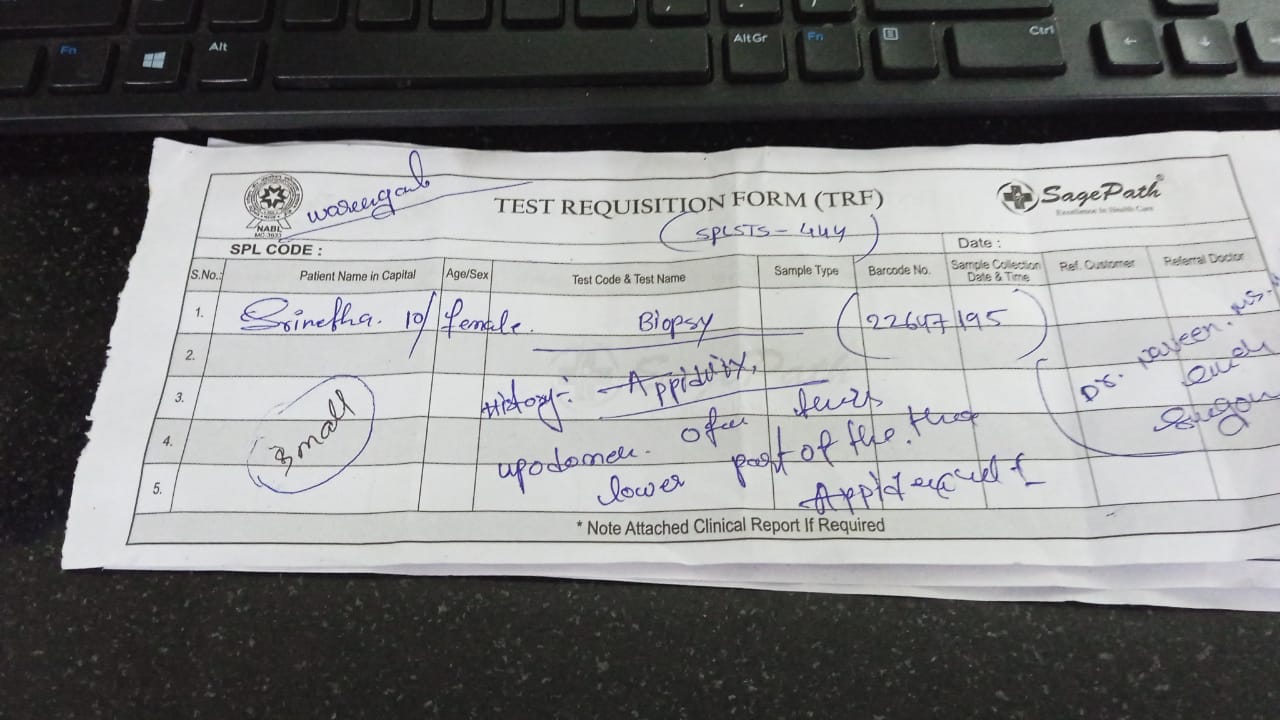 Fn
Alt
AltGr
Fn
Ctrl
warengal
NABL
TEST REQUISITION FORM (TRF)
SagePath
Excellence In Health Care
SPL CODE :
(SPLSTS - 444)
Date :
S.No.: Patient Name in Capital Age/Sex Test Code & Test Name Sample Type Barcode No. Sample Collection Date & Time Ref. Customer Referral Doctor
1. Srinetha. 10/ female. Biopsy (22647195)
2.
3. History:- Appidivix.
Dr. Naveen. MS.
4. upodomen.
lower part of the
5. small
* Note Attached Clinical Report If Required